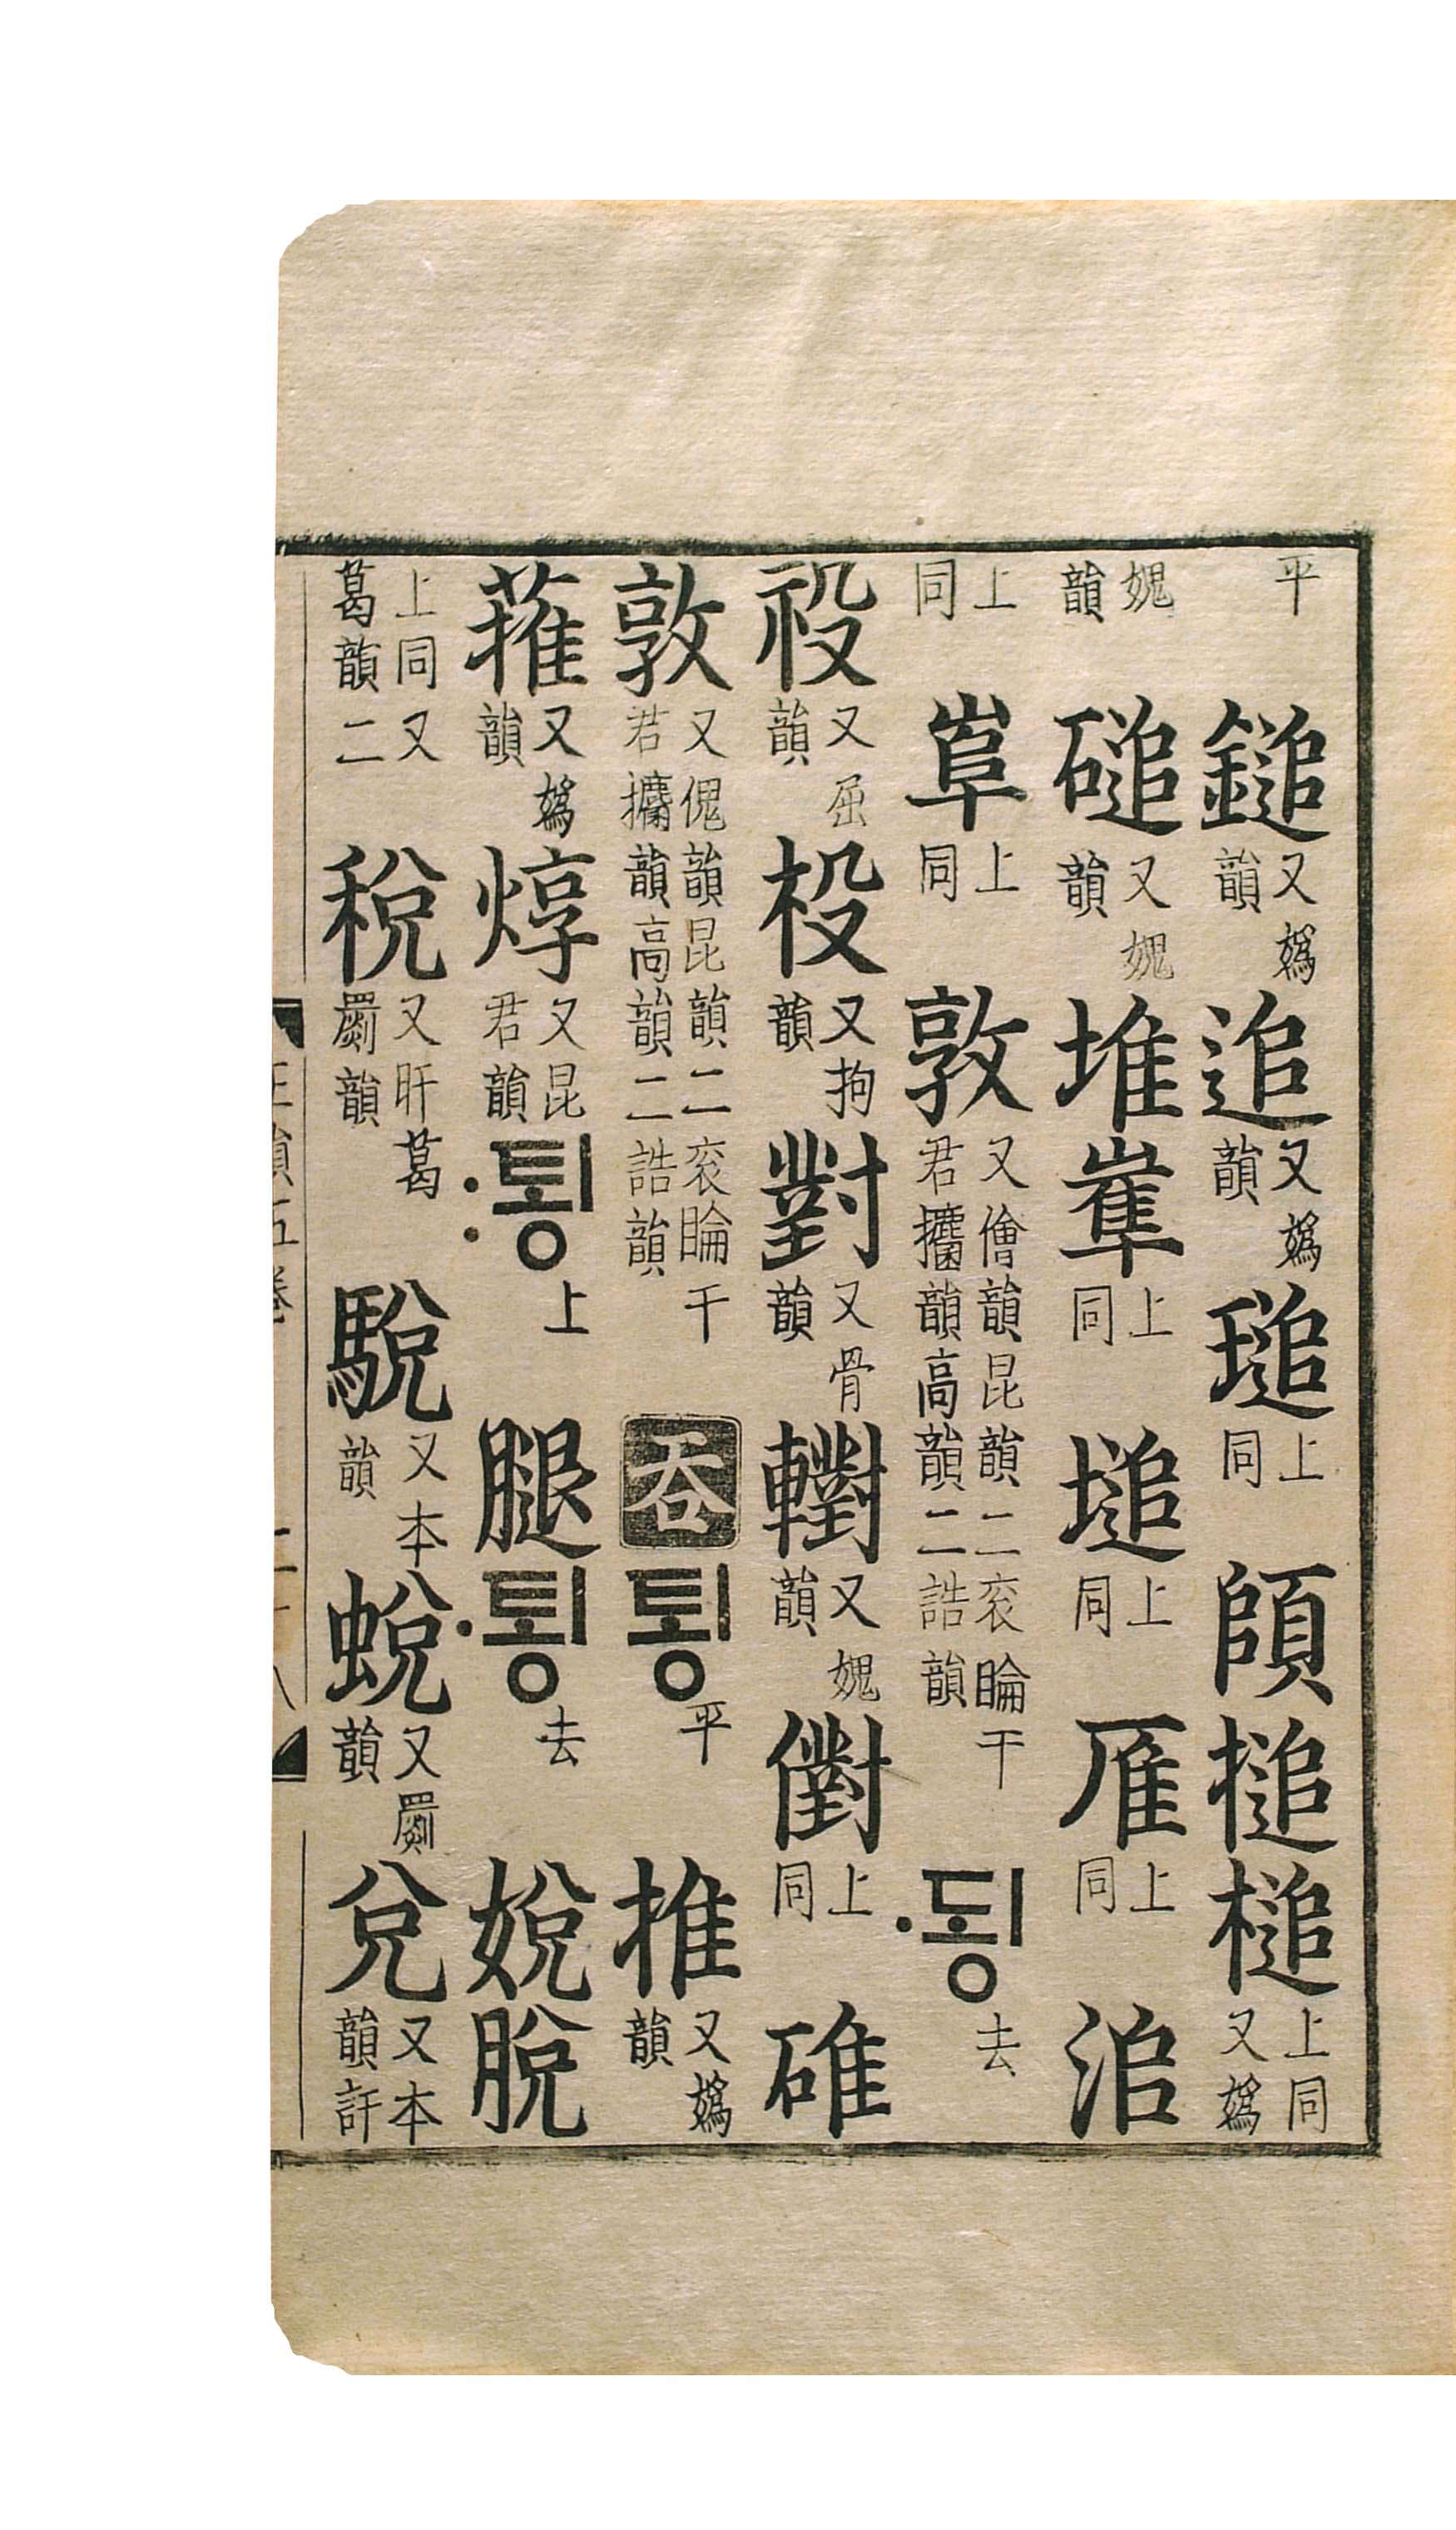 平 鎚 又嬀韻 追 又嬀韻 磓 上同 頧 搥 槌 上同又嬀
媿韻 磓 又媿韻 堆 嵟 上同 塠 上同 雁 上同 洎
上同 𨸏 上同 敦 又儈韻昆韻二衮睔干君韻高韻二誥韻 됭〮 去
祋 又屈韻 杸 又拘韻 對 又骨韻 轛 又媿韻 㒛 上同 碓
敦 又傀韻昆韻二衮睔干君韻高韻二誥韻 吞 툉 平 推 又嬀韻
蓷 又嬀韻 焞 又昆君韻 툉〯 上 腿 툉〮 去 娧 脫
上同又葛韻二 稅 又旰葛罽韻 駾 又本韻 蛻 又罽韻 兌 又本韻訐